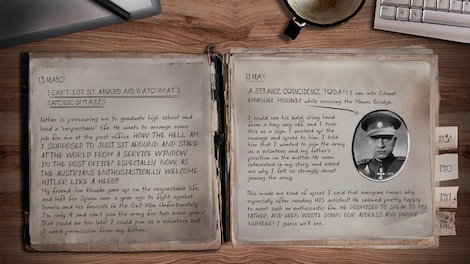 13 MARCH
I CAN'T JUST SIT AROUND AND WATCH WHAT'S
HAPPENING IN PRAGUE!
Father is pressuring me to graduate high school and
lead a "respectable" life. He wants to arrange some
job for me at the post office. HOW THE HELL AM
I SUPPOSED TO JUST SIT AROUND AND STARE
AT THE WORLD FROM A SERVICE WINDOW
IN THE POST OFFICE? ESPECIALLY NOW, AS
THE AUSTRIANS ENTHUSIASTICALLY WELCOME
HITLER LIKE A HERO!
My friend from Kbeady gave up on the respectable life,
and left for Spain over a year ago to fight against
Franco and his fascists in the Civil War. Unfortunately
I'm only 18 and can't join the army for two more years!
That could be too late! I could join as a volunteer, but
I need permission from my father...
13 MAY
A STRANGE COINCIDENCE TODAY: I saw into Colonel
EMANUEL MORAVEC while crossing the Mánes Bridge.
I could see his bald, shiny head
from a long way off, and I took
this as a sign. I worked up the
courage and spoke to him. I told
him that I wanted to join the army
as a volunteer, and my father's
position on the matter. He seemed
interested in my story, and asked
me why I felt so strongly about
joining the army.
This made me kind of upset. I said that everyone knows why,
especially after reading HIS articles! He seemed pretty happy
to meet such an enthusiastic fan. HE PROMISED TO SPEAK TO MY
FATHER, AND EVEN WROTE DOWN OUR ADDRESS AND PHONE
NUMBER! I guess we'll see...
1939
1940
1941
1942